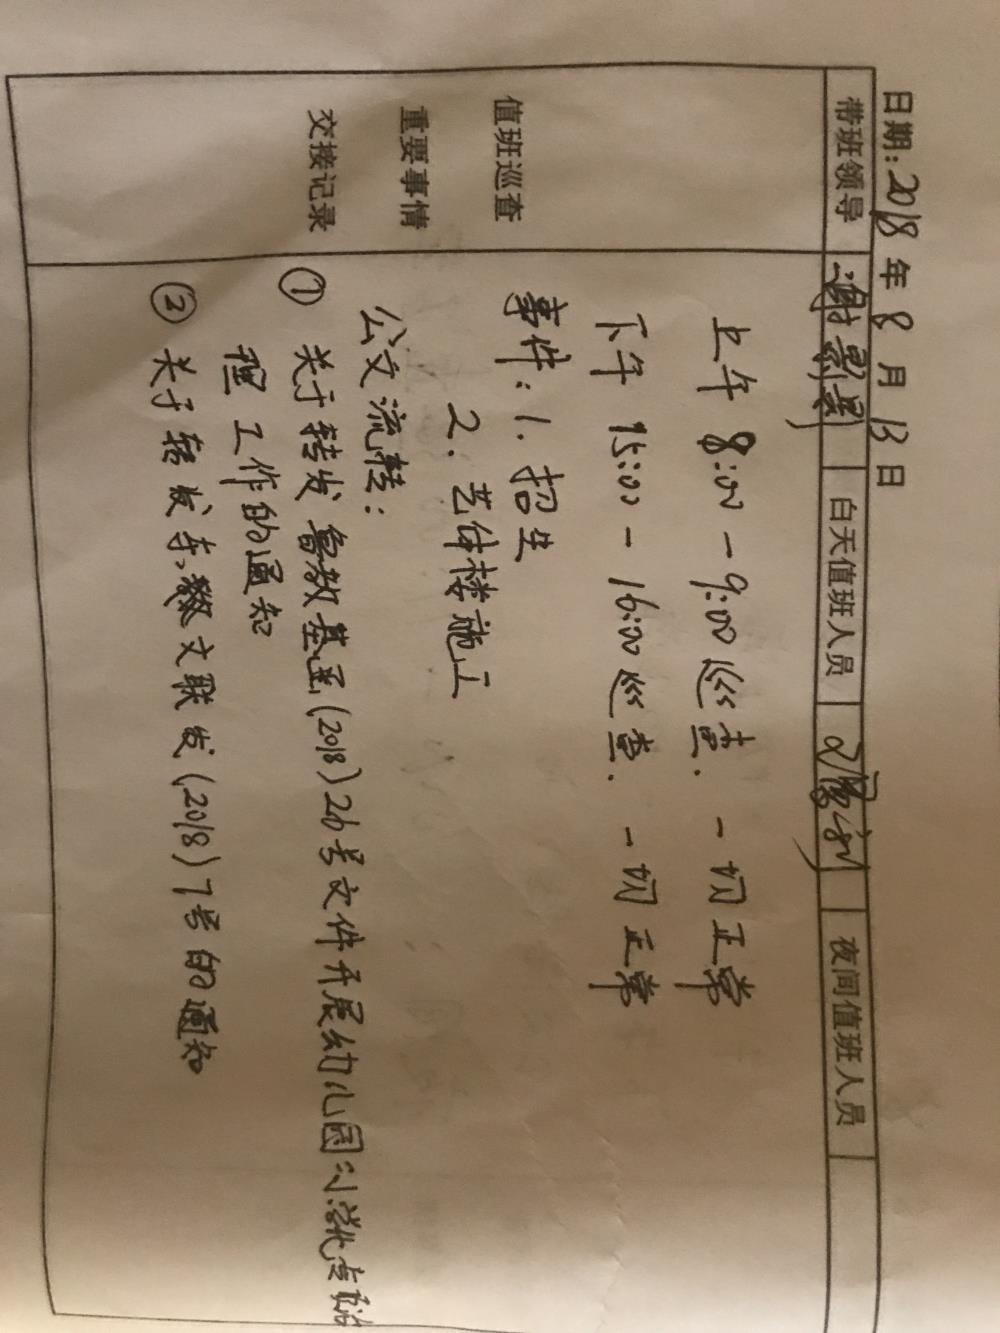 日期:2018年8月13日
带班领导 谢 白天值班人员 夜间值班人员
值班巡查
重要事情
交接记录
上午 8:00-9:00巡查.一切正常
下午 15:00-16:00巡查.一切正常
事件:1.招生
2.艺体楼施工
公文流转:
① 关于转发鲁教基函(2018)26号文件开展幼儿园小学化专项治
理工作的通知
② 关于转发 文联发(2018)7号的通知